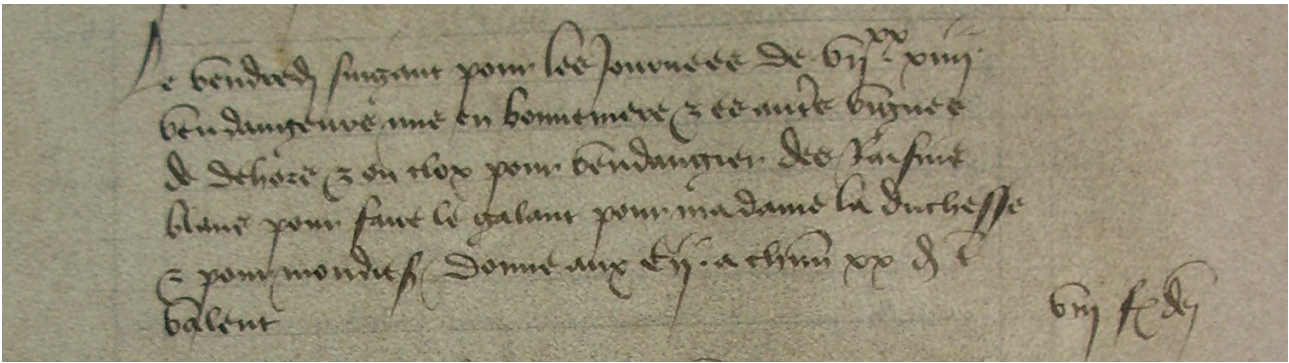 Le vendredi suigant pour les Journees de vii xx xiiii
vendangeurs mis en bonnemere & es autres vignes
de dehors & ou clox pour vendangier des Raisins
blans pour faire le galant pour madame la duchesse
& pour mondit s donne aux a chun xx d t
valent
viii f